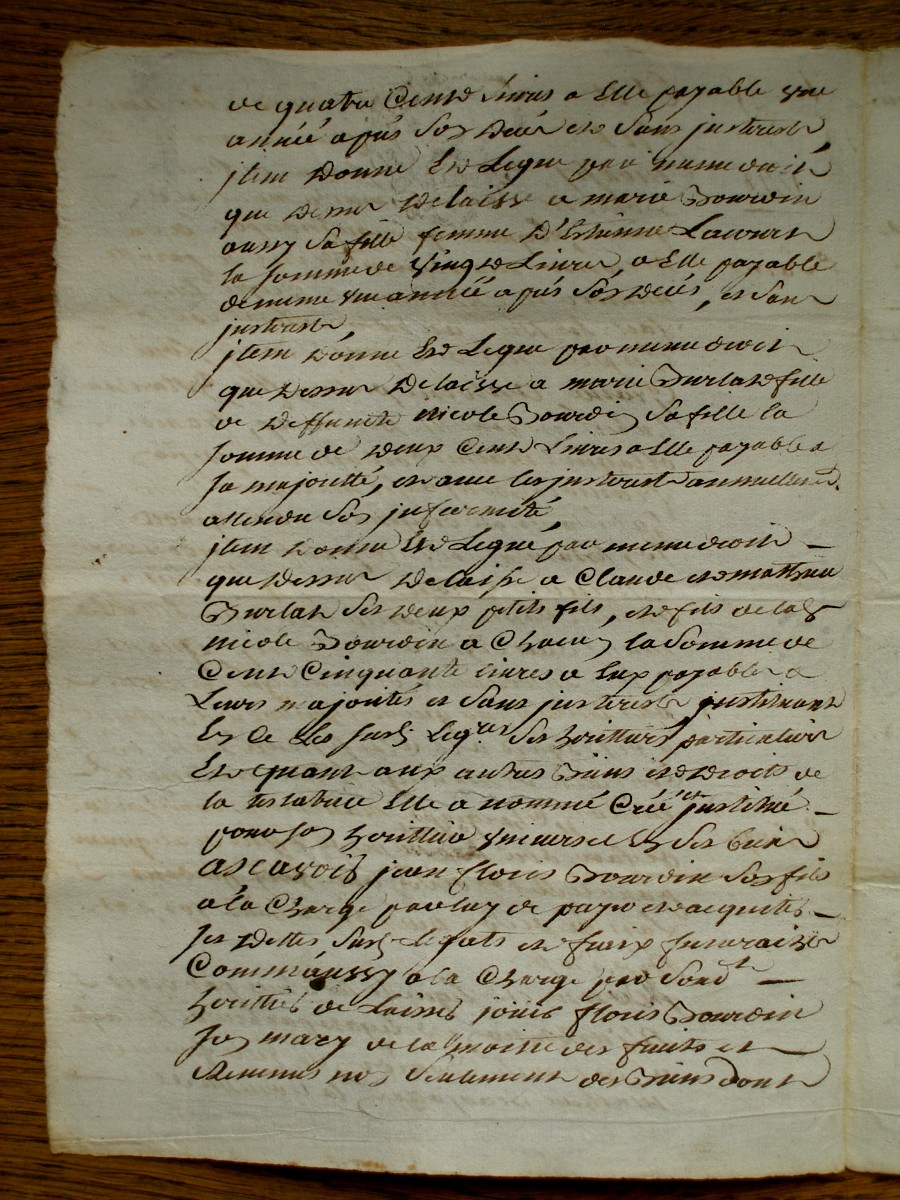 de quatre Cent Livres a Elle payable une
année après Son Décès et Sans jnterest
jtem Donne Et Legue par meme droit
que Dessus Delaisse a marie Bourdin
aussy Sa fille femme D'Estienne Lacourt
la Somme de Vingt Livres, a Elle payable
de meme une année après Son décès, et Sans
jnterest,
jtem Donne Et Legue par meme droit
que Dessus Delaisse a marie Burlat fille
de Deffuncte nicole Bourdin Sa fille la
Somme de deux Cent Livres a Elle payable a
Sa majorité, et avec les jnterest annuellement
attendu Son jnfirmité
jtem Donne Et Legue par meme droit
que Dessus Delaisse a Claude et mathieu
Burlat Ses deux petits fils, et fils de lad
nicole Bourdin a Chacun la Somme de
Cent Cinquante livres a Eux payable a
Leurs majorités et Sans jnterest jnstituant
En Ce Les Susd Legres Ses heritiers particuliers
Et quant aux autres Biens et Droits de
la testatrice Elle a nommé Créé et jnstitué
pour Son heritier universel En Ses biens
ascavoir jean floris Bourdin Son fils
a la Charge par luy de payer et acquiter
Ses Dettes Susd Legats et fraix funeraires
Comme aussy a la Charge par Sond
heritier de Laisser jouir floris Bourdin
Son mary de la moitié des fruits et
Revenus non Seulement des Biens dont